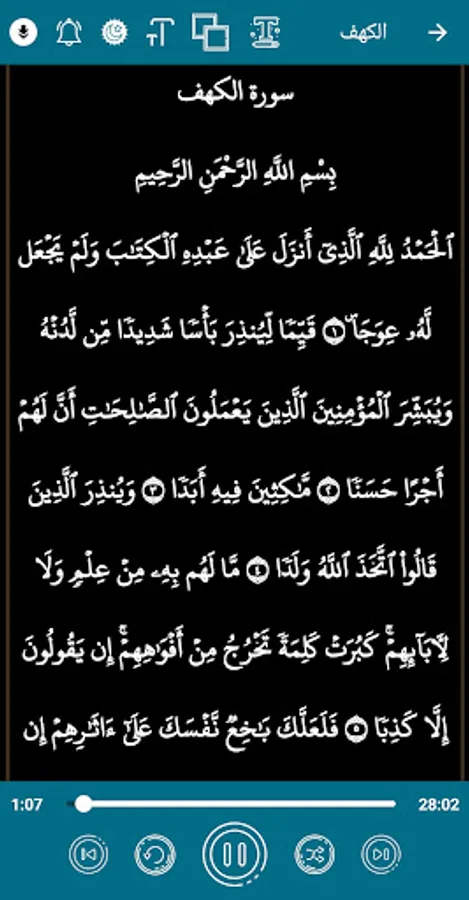 الكهف
سورة الكهف
بِسْمِ اللَّهِ الرَّحْمَنِ الرَّحِيمِ
ٱلْحَمْدُ لِلَّهِ ٱلَّذِىٓ أَنزَلَ عَلَىٰ عَبْدِهِ ٱلْكِتَـٰبَ وَلَمْ يَجْعَل
لَّهُۥ عِوَجَاۜ ١ قَيِّمًا لِّيُنذِرَ بَأْسًا شَدِيدًا مِّن لَّدُنْهُ
وَيُبَشِّرَ ٱلْمُؤْمِنِينَ ٱلَّذِينَ يَعْمَلُونَ ٱلصَّـٰلِحَـٰتِ أَنَّ لَهُمْ
أَجْرًا حَسَنًا ٢ مَّـٰكِثِينَ فِيهِ أَبَدًا ٣ وَيُنذِرَ ٱلَّذِينَ
قَالُوا۟ ٱتَّخَذَ ٱللَّهُ وَلَدًا ٤ مَّا لَهُم بِهِۦ مِنْ عِلْمٍ وَلَا
لِـَٔابَآئِهِمْ ۚ كَبُرَتْ كَلِمَةً تَخْرُجُ مِنْ أَفْوَٰهِهِمْ ۚ إِن يَقُولُونَ
إِلَّا كَذِبًا ٥ فَلَعَلَّكَ بَـٰخِعٌ نَّفْسَكَ عَلَىٰٓ ءَاثَـٰرِهِمْ إِن
1:07 28:02